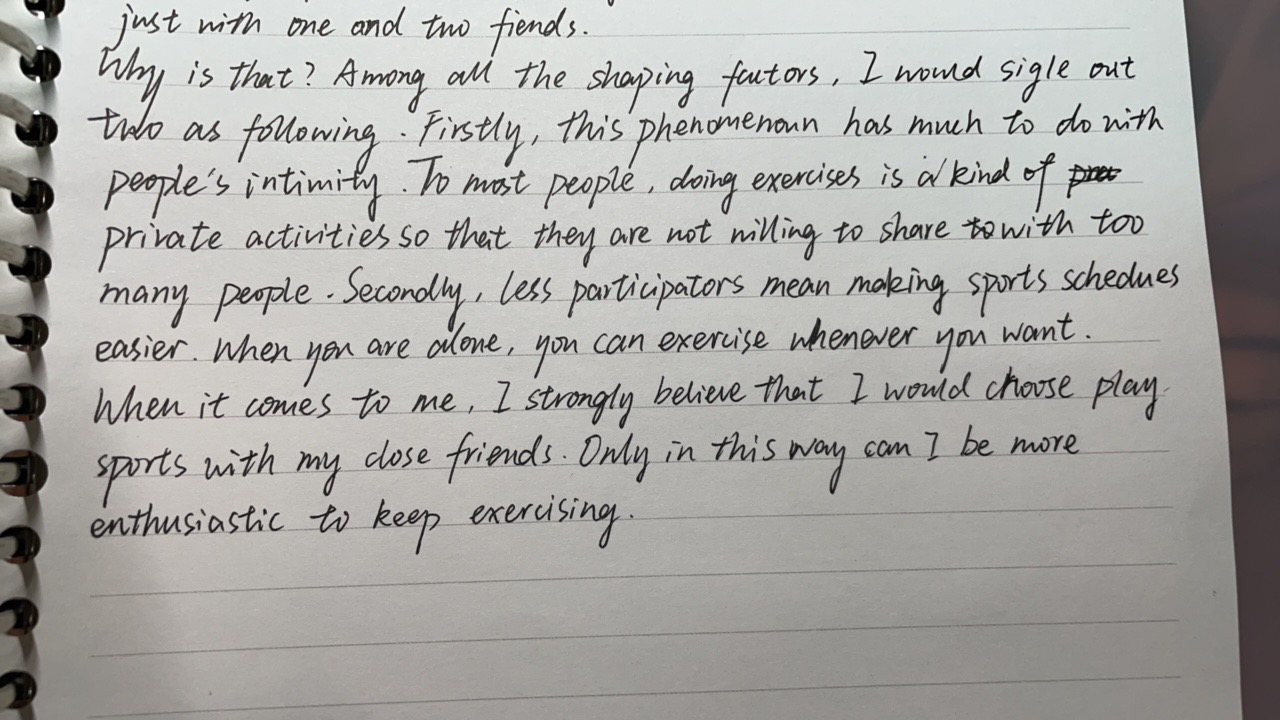 just with one and two fiends.
Why is that? Among all the shaping fautors, I would sigle out
two as following. Firstly, this phenomenoun has much to do with
people's intimity. To most people, doing exercises is a kind of
private activities so that they are not willing to share with too
many people. Secondly, less participators mean making sports schedues
easier. When you are alone, you can exercise whenever you want.
When it comes to me, I strongly believe that I would choose play
sports with my close friends. Only in this way can I be more
enthusiastic to keep exercising.